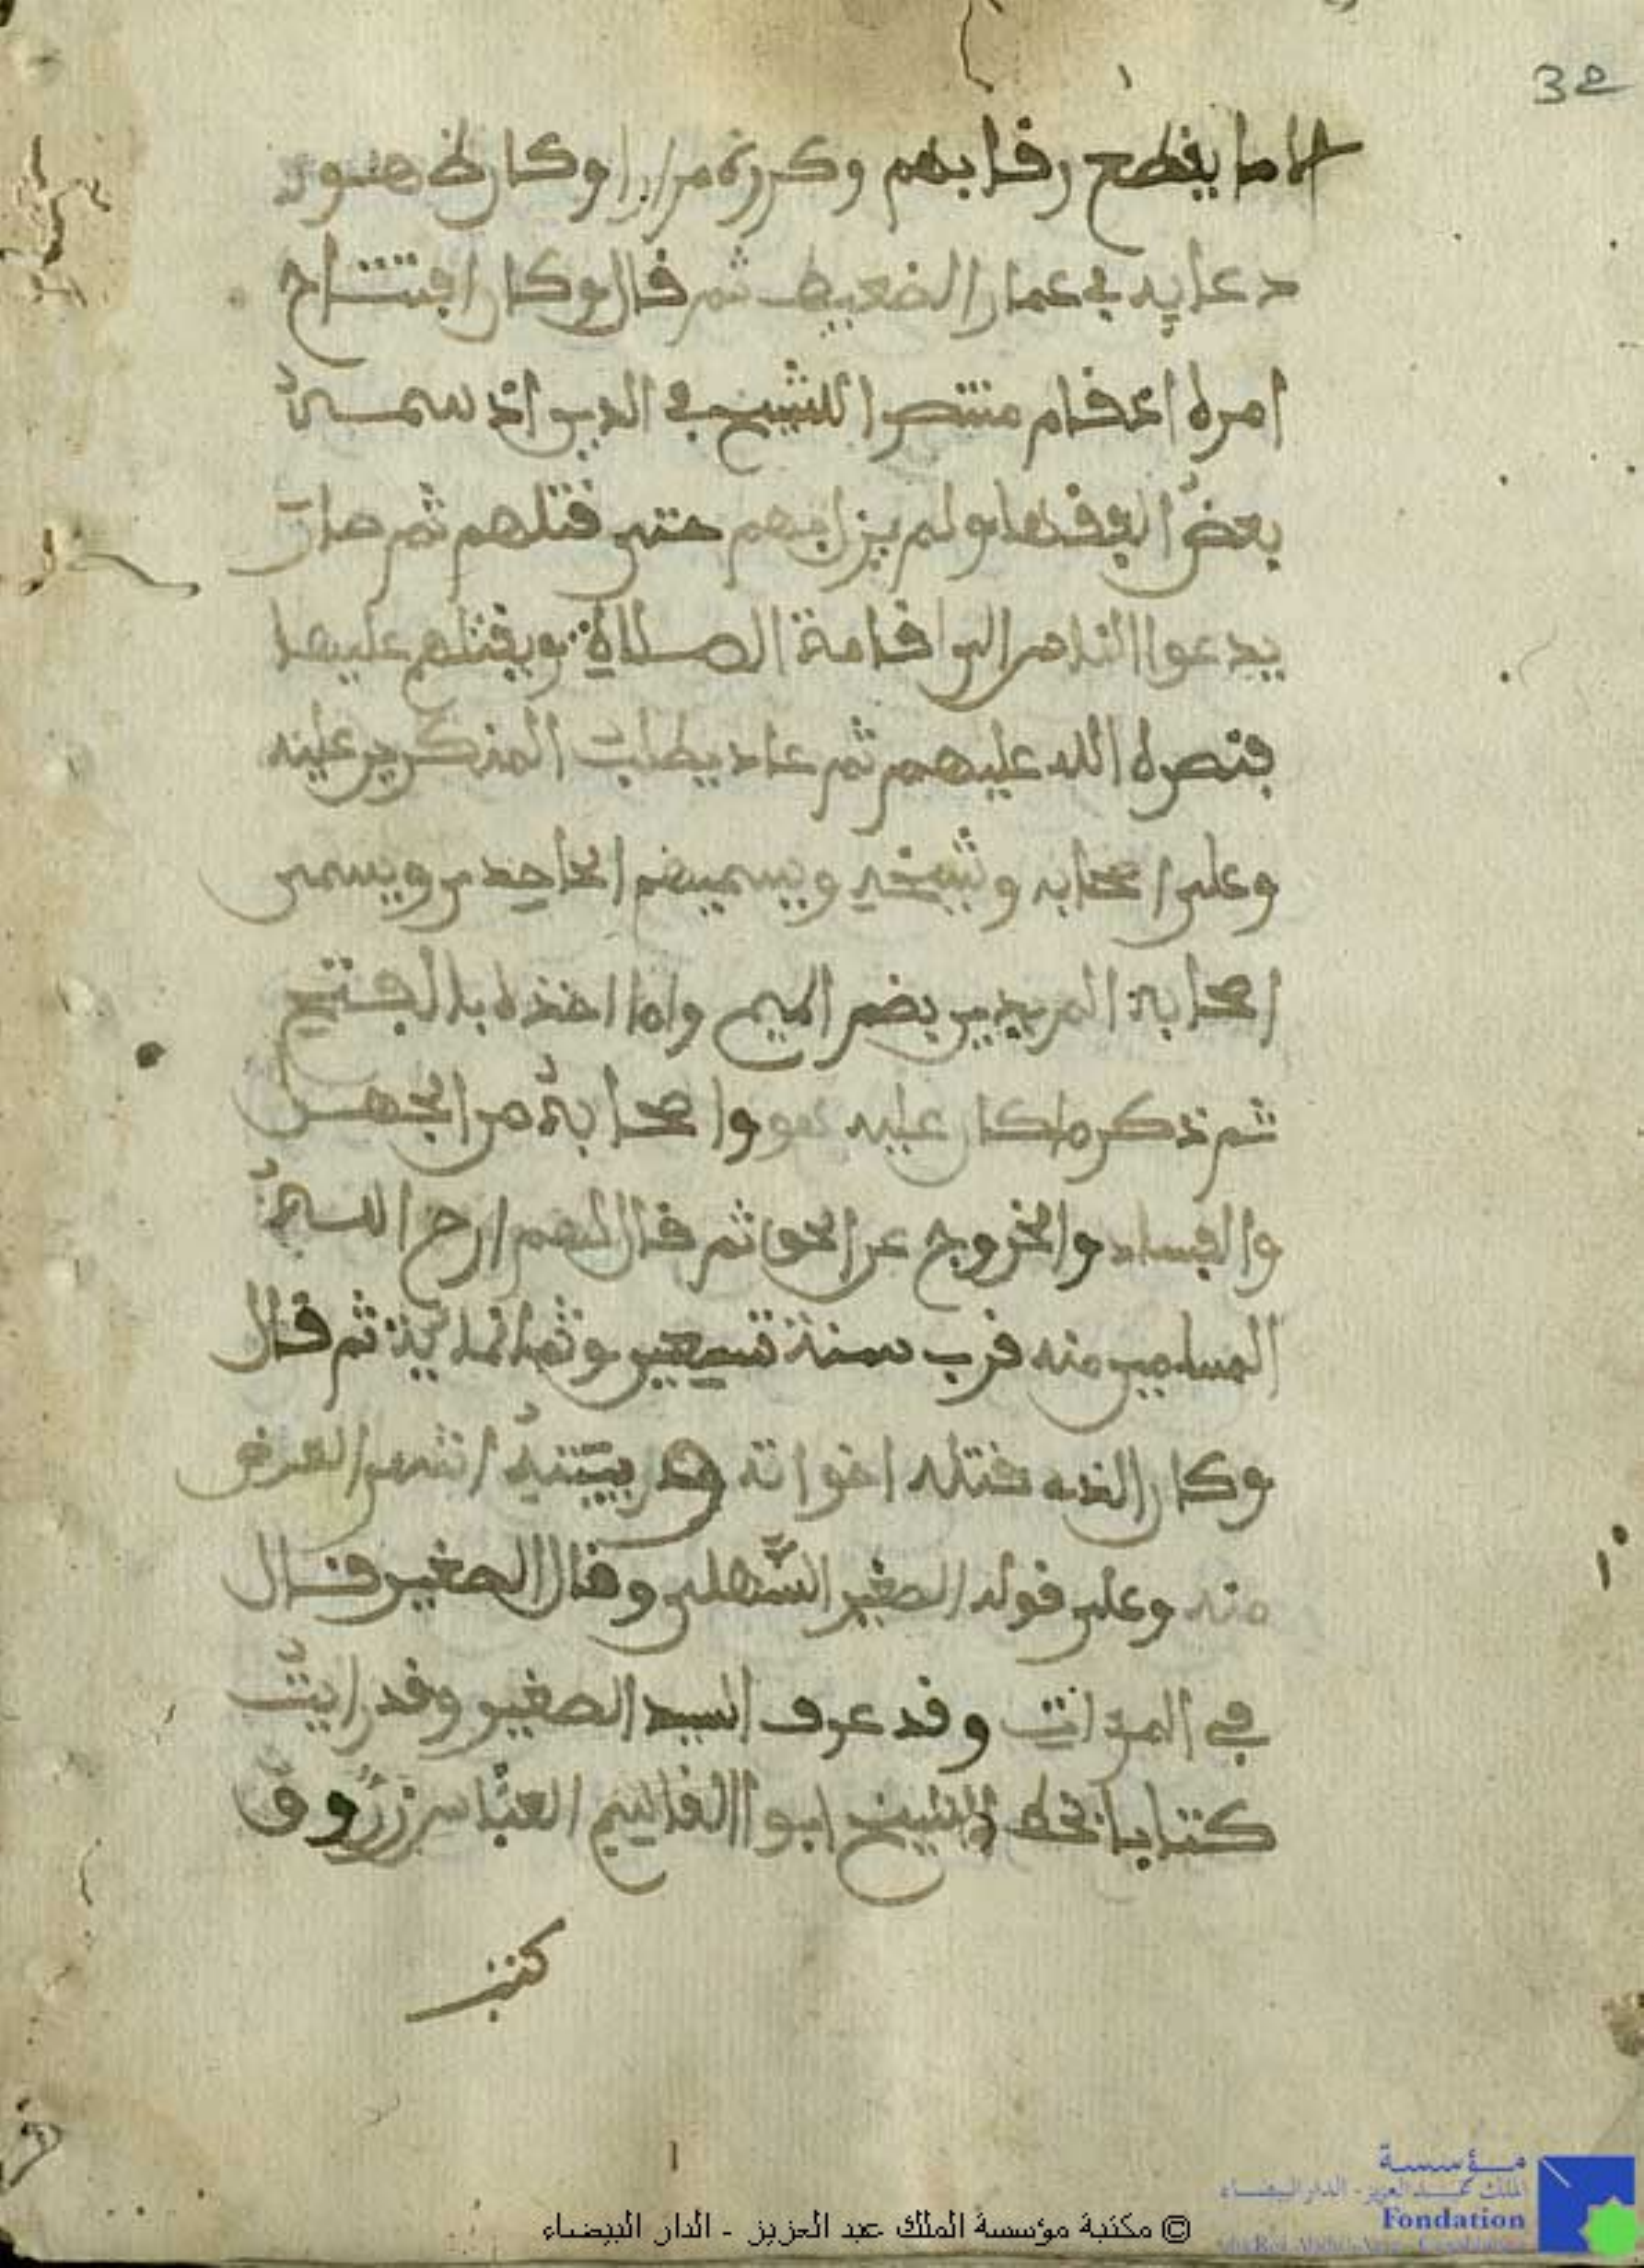 32
الا ما يقطع رقابهم وكررته مرارا وكان ظهور
دعايه في عمار الضعيف ثم قال وكان افتتاح
امره ان قام منتصرا للشيخ في الدين اذ سمه
بعض الفقهاء ولم يزل بهم حتى قتلهم ثم صار
يدعوا الناس الى اقامة الصلاة ويقتلهم عليها
فنصره الله عليهم ثم عاد يطلب المنكرين عليه
وعلى اصحابه وشيخه ويسميهم الجاحدين ويسمى
اصحابه المريدين بضم الميم وانما اخذه بالفتح
ثم ذكر ما كان عليه هو واصحابه من الجهل
والفساد والخروج عن الحق ثم قال اللهم ارح الله
المسلمين منه قرب سنة تسعين وثمانماية ثم قال
وكان الذي قتله اخواته وهن بيته انتهى الغرض
منه وعلى قوله الصغير السهلي وقال الصغير قال
في المرءات وقد عرف السيد الصغير وقد رايت
كتابا بخط الشيخ ابو القاسم العباس زروق
كتب
© مكتبة مؤسسة الملك عبد العزيز - الدار البيضاء
مؤسسة
الملك عبد العزيز - الدار البيضاء
Fondation